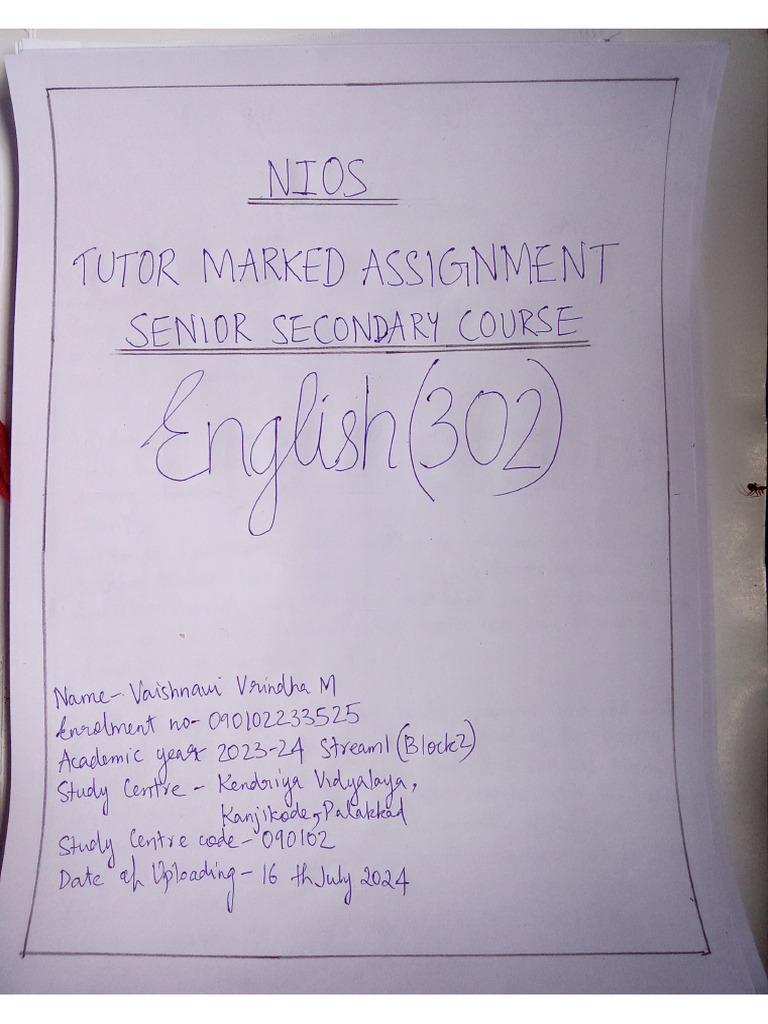 NIOS
TUTOR MARKED ASSIGNMENT
SENIOR SECONDARY COURSE
English (302)
Name- Vaishnavi Vrindha M
Enrolment no- 090102233525
Academic year- 2023-24 Stream1 (Block2)
Study Centre - Kendriya Vidyalaya,
Kanjikode, Palakkad
Study Centre code- 090102
Date of Uploading - 16 th July 2024